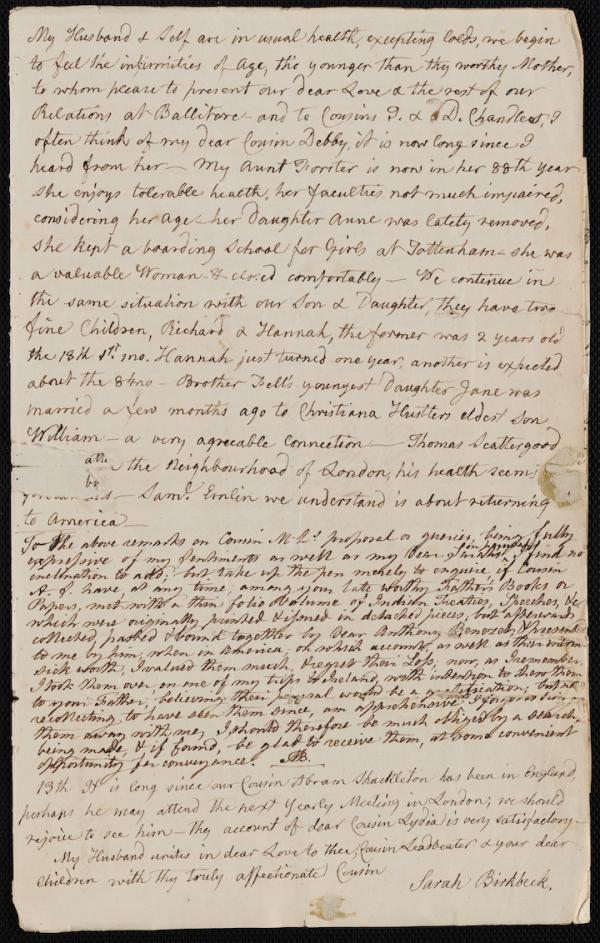 My Husband & Self are in usual health, excepting Colds, we begin
to feel the infirmities of Age, tho' younger than thy worthy Mother,
to whom please to present our dear Love & the rest of our
Relations at Ballitore - and to Cousins T. & D. Chandlee, I
often think of my dear Cousin Debby, it is now long since I
heard from her - My Aunt Forster is now in her 88th year
she enjoys tolerable health, her faculties not much impaired,
considering her age - her Daughter Anne was lately removed,
she kept a boarding School for Girls at Tottenham - she was
a valuable Woman - & closed comfortably - We continue in
the same situation with our Son & Daughter, they have two
fine Children, Richard & Hannah, the former was 2 years old
the 18th 1st mo. Hannah just turned one year, another is expected
about the 8 mo - Brother Fell's youngest Daughter Jane was
married a few months ago to Christiana Hustlers eldest Son
William - a very agreeable Connection - Thomas Scattergood
the Neighbourhood of London, his health seems
by
- Saml. Emlin we understand is about returning
to America -
To the above remarks on Cousin M. L's proposal or queries, being fully
expressive of my Sentiments as well as my dear Sarah's, I find no
inclination to add; but take up the pen merely to enquire if Cousin
A. S. have, at any time, among your late worthy Father's Books or
Papers, met with a thin folio Volume of Indian Treaties, Speeches, &c
which were originally printed & issued in detached pieces, but afterwards
collected, pasted & bound together by Dear Anthony Benezet, & present
to me by him, when in America; on which account, as well as their intrin
sick worth, I valued them much, & regret their Loss; now, as I remember
I took them over, on one of my trips to Ireland, with intention to shew them
to your Father, believing their perusal would be a gratification; but not
recollecting to have seen them since, am apprehensive I forgot to bring
them away with me; I should therefore be much obliged by a Search
being made, & if found, be glad to receive them, at some convenient
opportunity for conveyance.
13th It is long since our Cousin Abram Shackleton has been in England,
perhaps he may attend the next Yearly Meeting in London; we should
rejoice to see him - thy account of dear Cousin Lydia is very satisfactory -
My Husband unites in dear Love to thee Cousin Leadbeater & your dear
Children with thy truly affectionate Cousin
Sarah Birkbeck.